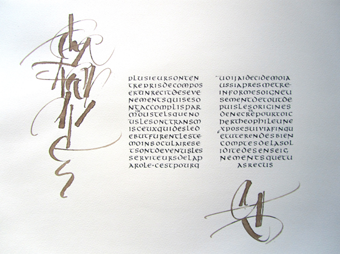 PLUSIEURSONTEN
TREPRISDECOMPOS
ERUNRECITDESEVE
NEMENTSQUISESO
NTACCOMPLISPAR
MINOUSTELSQUENO
USLESONTTRANSM
ISCEUXQUIDESLED
EBUTFURENTLESTE
MOINSOCULAIRESE
TSONTDEVENUSLES
SERVITEURSDELAP
AROLECESTPOURQ
UOIJAIDECIDEMOIA
USSIAPRESMETRE
INFORMESOIGNEU
SEMENTDETOUTDE
PUISLESORIGINES
DENECRIREPOURTOIC
HERTHEOPHILEUNE
XPOSESUIVIAFINQ
UETURENDESBIEN
COMPTEDELASOL
IDITEDESENSEIG
NEMENTSQUETU
ASRECUS